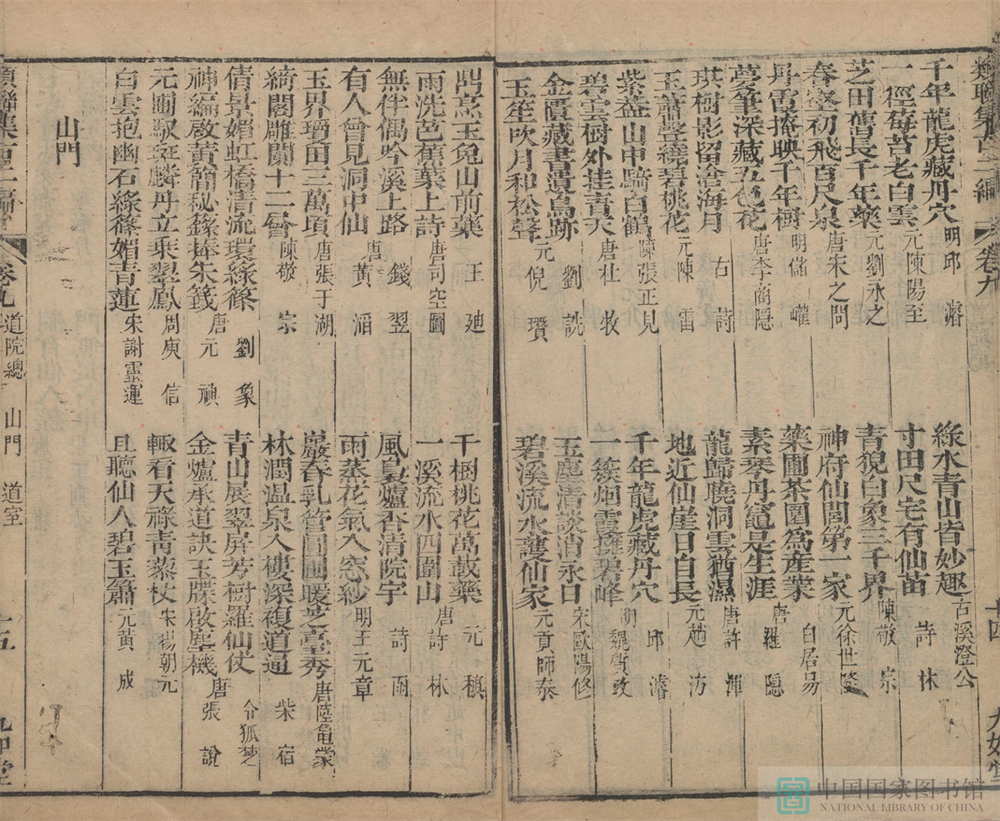 類聯集古二編 卷九 十四 九如堂
千年龍虎藏丹穴 明邱濬 綠水青山皆妙趣 古溪澄公
一徑莓苔老白雲 元陳陽至 寸田尺宅有仙苗 許休
芝田舊長千年藥 元劉永之 青猊白象三千界 陳敬宗
春壑初飛百尺泉 唐宋之問 神府仙閣第一家 元徐世隆
丹霞掩映千年樹 明儲巏 藥圃茶園為產業 白居易
夢筆深藏五色花 唐李商隱 素琴丹竈是生涯 唐羅隱
珙樹影留滄海月 古詩 龍歸曉洞雲猶濕 唐許渾
玉蕭聲繞碧桃花 元陳雷 地近仙崖日自長 元趙汸
紫蓋山中騎白鶴 陳張正見 千年龍虎藏丹穴 邱濬
碧雲樹外挂青天 唐杜牧 一簇烟霞擁碧峰 明魏時敏
金匱藏書遺鳥跡 劉詵 玉塵清談消永日 宋歐陽修
玉笙吹月和松聲 元倪瓚 碧溪流水護仙家 元貢師泰
鼎烹玉兔山前藥 王廸 千樹桃花萬載藥 元稹
雨洗芭蕉葉上詩 唐司空圖 一溪流水四圍山 唐詩林
無伴偶吟溪上路 錢翌 風裊爐香清院宇 詩雨
有人曾見洞中仙 唐黃滔 雨蒸花氣入窓紗 明王元章
玉界瓊田三萬頃 唐張于湖 巖春乳管圓圃暖芝臺秀 唐陸龜蒙
綺閣雕闌十二層 陳敬宗 林潤温泉入樓深複道通 柴宿
倩景媚虹橋清流環綠篠 劉象 青山展翠屏芳樹羅仙仗 令狐楚
神編啟黃簡秘籙捧朱籤 唐元禎 金爐承道訣玉牒啟塵機 唐張說
元圃馭班麟丹立乘翠鳳 周庾信 輙看天祿靑藜杖 宋楊朝元
白雲抱幽石綠篠媚青蓮 宋謝靈運 且聽仙人碧玉簫 元黃成
山門
類聯集古二編 卷九 道院總 山門 道室 十五 九如堂
中国国家图书馆
NATIONAL LIBRARY OF CHINA